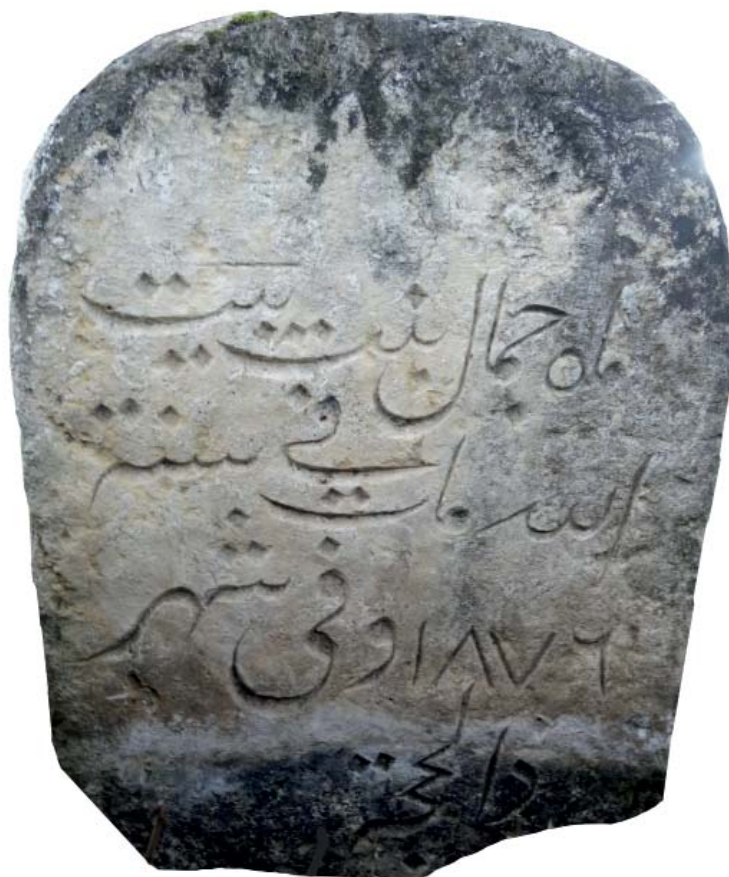 ماه جمال بنت بيت
الله مات في سنة
١٨٧٦ وفى شهر
ذالحجة